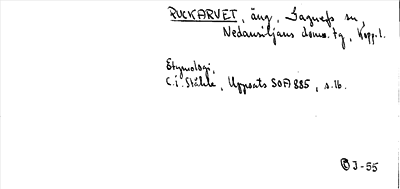 RUCKARVET, äng, Jagnefs sn,
Nedansiljans doms. tg, Kopp. l.
Etymologi,
C. I. Ståhle, Uppsats SOFI 885, s. 16.
© J-55